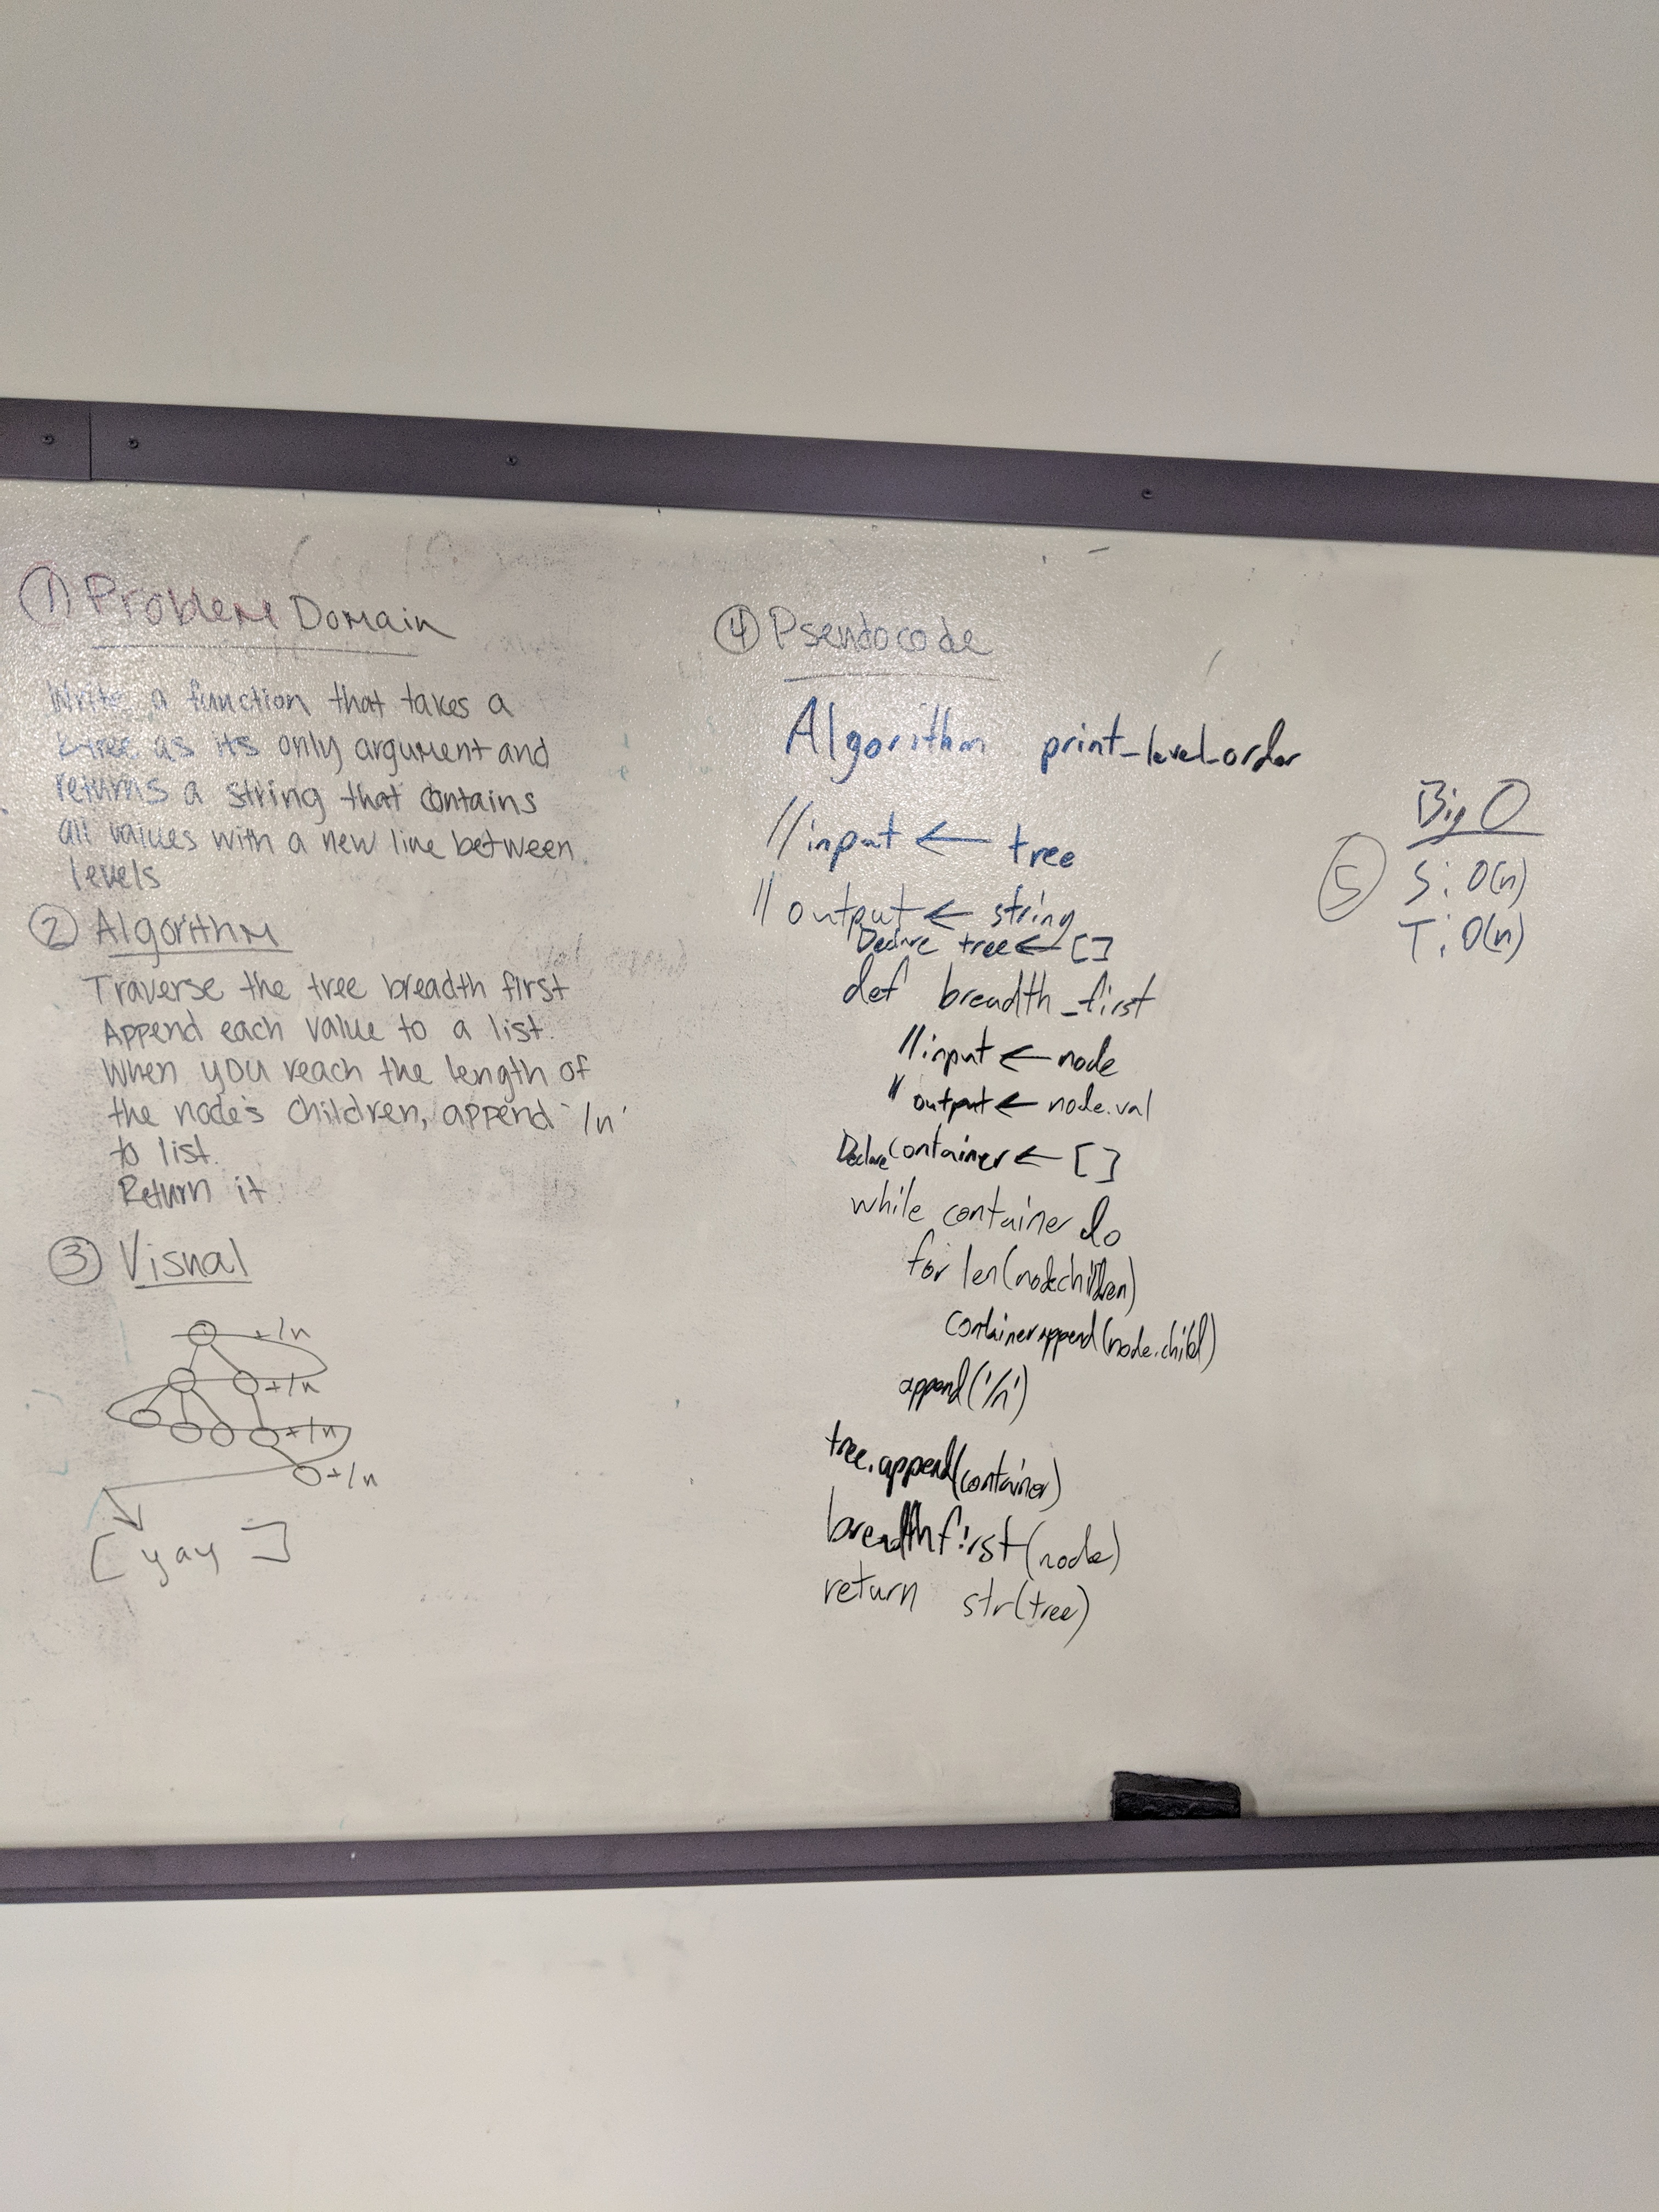 ① Problem Domain
Write a function that takes a
k-tree as its only argument and
returns a string that contains
all values with a new line between
levels
② Algorithm
Traverse the tree breadth first
Append each value to a list.
When you reach the length of
the node's children, append '/n'
to list.
Return it.
③ Visual
+/n
+/n
+/n
+/n
[ yay ]
④ Pseudocode
Algorithm print_level_order
//input ← tree
// output ← string
Declare tree ← []
def breadth_first
//input ← node
// output ← node.val
Declare container ← []
while container do
for len(node.children)
container.append(node.child)
append('/n')
tree.append(container)
breadthfirst(node)
return str(tree)
⑤ Big O
S: O(n)
T: O(n)